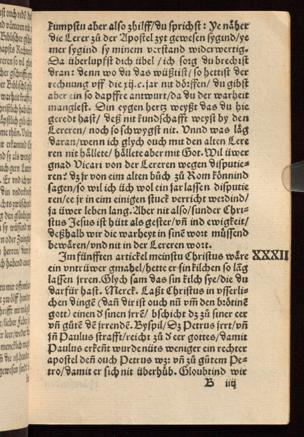 kumpstu aber also zhilff/du sprichst: Ye näher
die Lerer zů der Apostel zyt gewesen sygind/ye
mer sygind sy minem verstand widerwertig.
Da überlupfst dich übel/ich sorg du brechist
dran: denn wo du das wüßtist/so hettist der
rechnung vff die iij.c.jar nit dörffen/du gibst
aber ein so dapffre antwurt/da du der warheit
manglest. Din eygen hertz weyßt das du hie
geredt hast/deß nit kundschafft weyst by den
Lereren/noch so schwygst nit. Vnnd was läg
daran/wenn ich glych ouch mit den alten Lere
ren nit hällete/hällete aber mit Got. Wil üwer
gnad Vicari von der Lereren wegen disputie
ren? dz ir von eim alten bůch zů Rom könnind
sagen/so wil ich üch wol ein jar lassen disputie
ren/ee jr in eim einigen stuck verricht werdind/
ja üwer leben lang. Aber nit also/sunder Chri-
stus Ihus ist hüt als gester/vñ ind ewigkeit/
deßhalb wir die warheyt in sinē wort müssend
bewären/vnd nit in der Lereren wort.
Im fünfften artickel meinstu Christus wäre XXXII
ein vntrüwer gmahel/hette er sin kilchen so läg
lassen jrren. Glych sam das sin kilch sye/die du
darfür hast. Merck. Laßt Christus in vsserlis
chen dinge (dañ dir ist ouch nū vm̄ den brötinē
gott) einen d sinen jrrē/bschicht dz zů siner eer
vñ gůtē dē jrrendē. Byspil/Dz Petrus jrrt/vñ
jn Paulus strafft/reicht zů d eer gottes/damit
Paulus erkeñt wurde nüts weniger ein rechter
apostel deñ ouch Petrus wz: vñ zů gůtem Pe-
tro/damit er sich nit überhůb. Gloubtind wir
B iiij